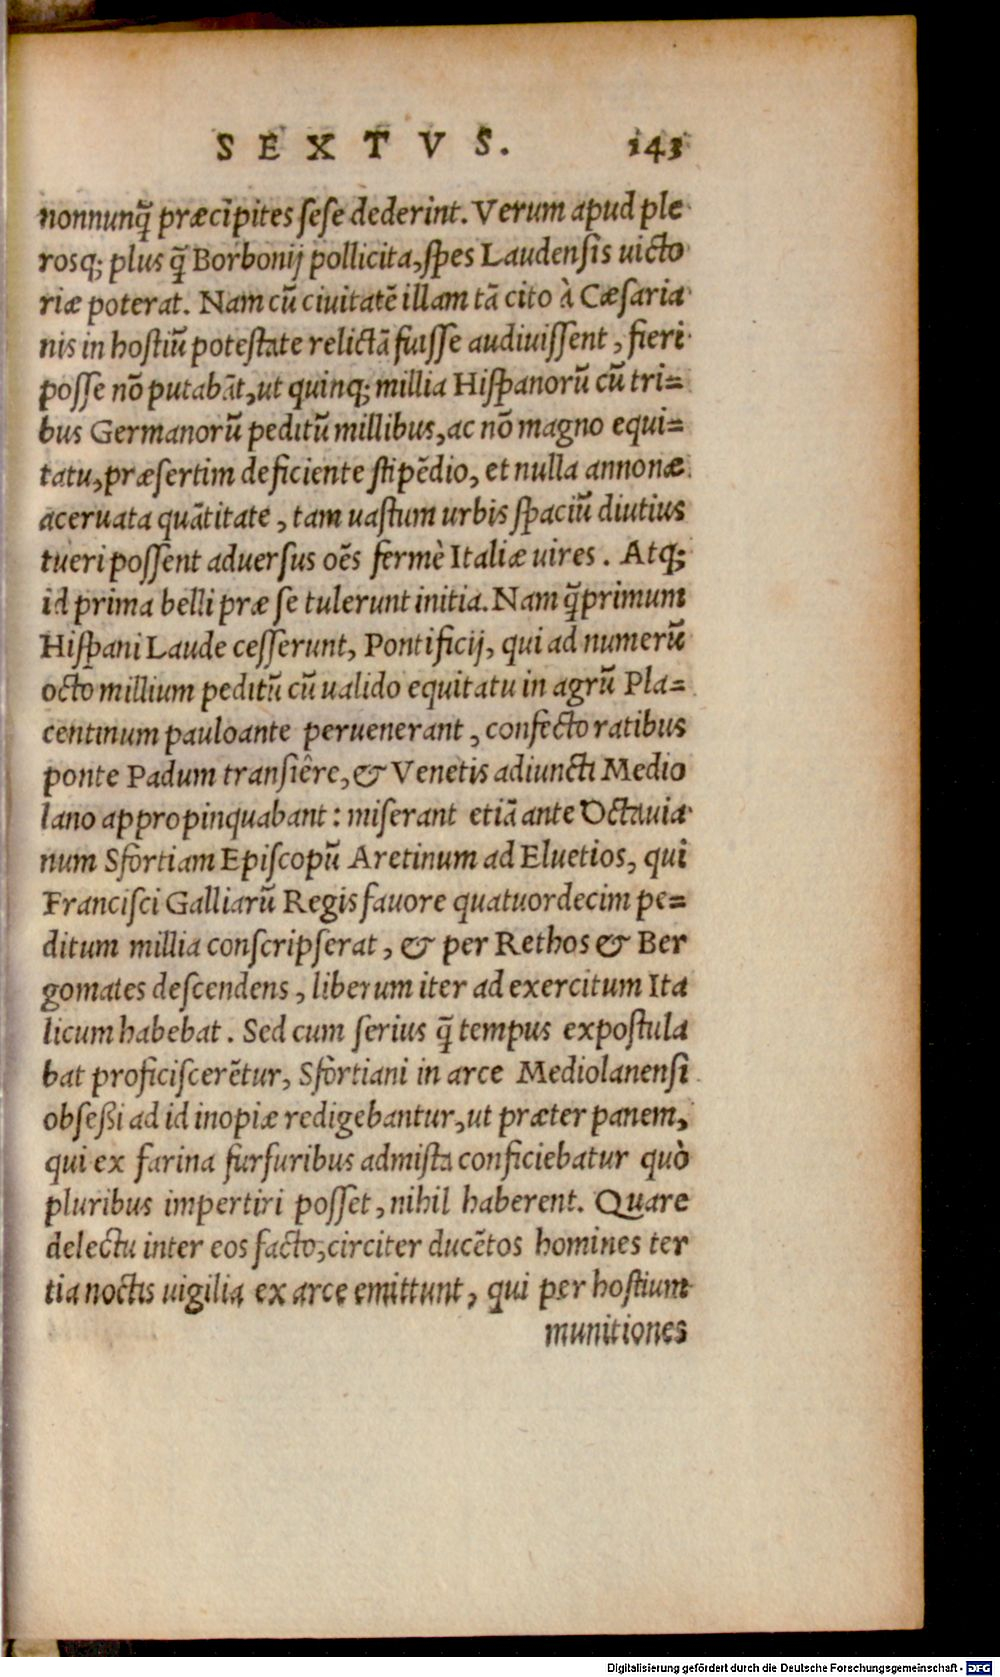 SEXTVS. 143
nonnunq̃ præcipites ſeſe dederint. Verum apud ple
roſq; plus q̃ Borbonij pollicita, ſpes Laudenſis uicto
riæ poterat. Nam cũ ciuitatẽ illam tã cito à Cæſaria
nis in hoſtiũ poteſtate relictã fuiſſe audiuiſſent, fieri
poſſe nõ putabãt, ut quinq; millia Hiſpanorũ cũ tri=
bus Germanorũ peditũ millibus, ac nõ magno equi=
tatu, præſertim deficiente ſtipẽdio, et nulla annonæ
aceruata quãtitate, tam uaſtum urbis ſpaciũ diutius
tueri poſſent aduerſus oẽs fermè Italiæ uires. Atq;
id prima belli præ ſe tulerunt initia. Nam q̃primum
Hiſpani Laude ceſſerunt, Pontificij, qui ad numerũ
octo millium peditũ cũ ualido equitatu in agrũ Pla=
centinum pauloante peruenerant, confecto ratibus
ponte Padum tranſiêre, & Venetis adiuncti Medio
lano appropinquabant: miſerant etiã ante Octauia
num Sfortiam Epiſcopũ Aretinum ad Eluetios, qui
Franciſci Galliarũ Regis fauore quatuordecim pe=
ditum millia conſcripſerat, & per Rethos & Ber
gomates deſcendens, liberum iter ad exercitum Ita
licum habebat. Sed cum ſerius q̃ tempus expoſtula
bat proficiſcerẽtur, Sfortiani in arce Mediolanenſi
obſeßi ad id inopiæ redigebantur, ut præter panem,
qui ex farina furfuribus admiſta conficiebatur quò
pluribus impertiri poſſet, nihil haberent. Quare
delectu inter eos facto, circiter ducẽtos homines ter
tia noctis uigilia ex arce emittunt, qui per hoſtium
munitiones
Digitalisierung gefördert durch die Deutsche Forschungsgemeinschaft - DFG